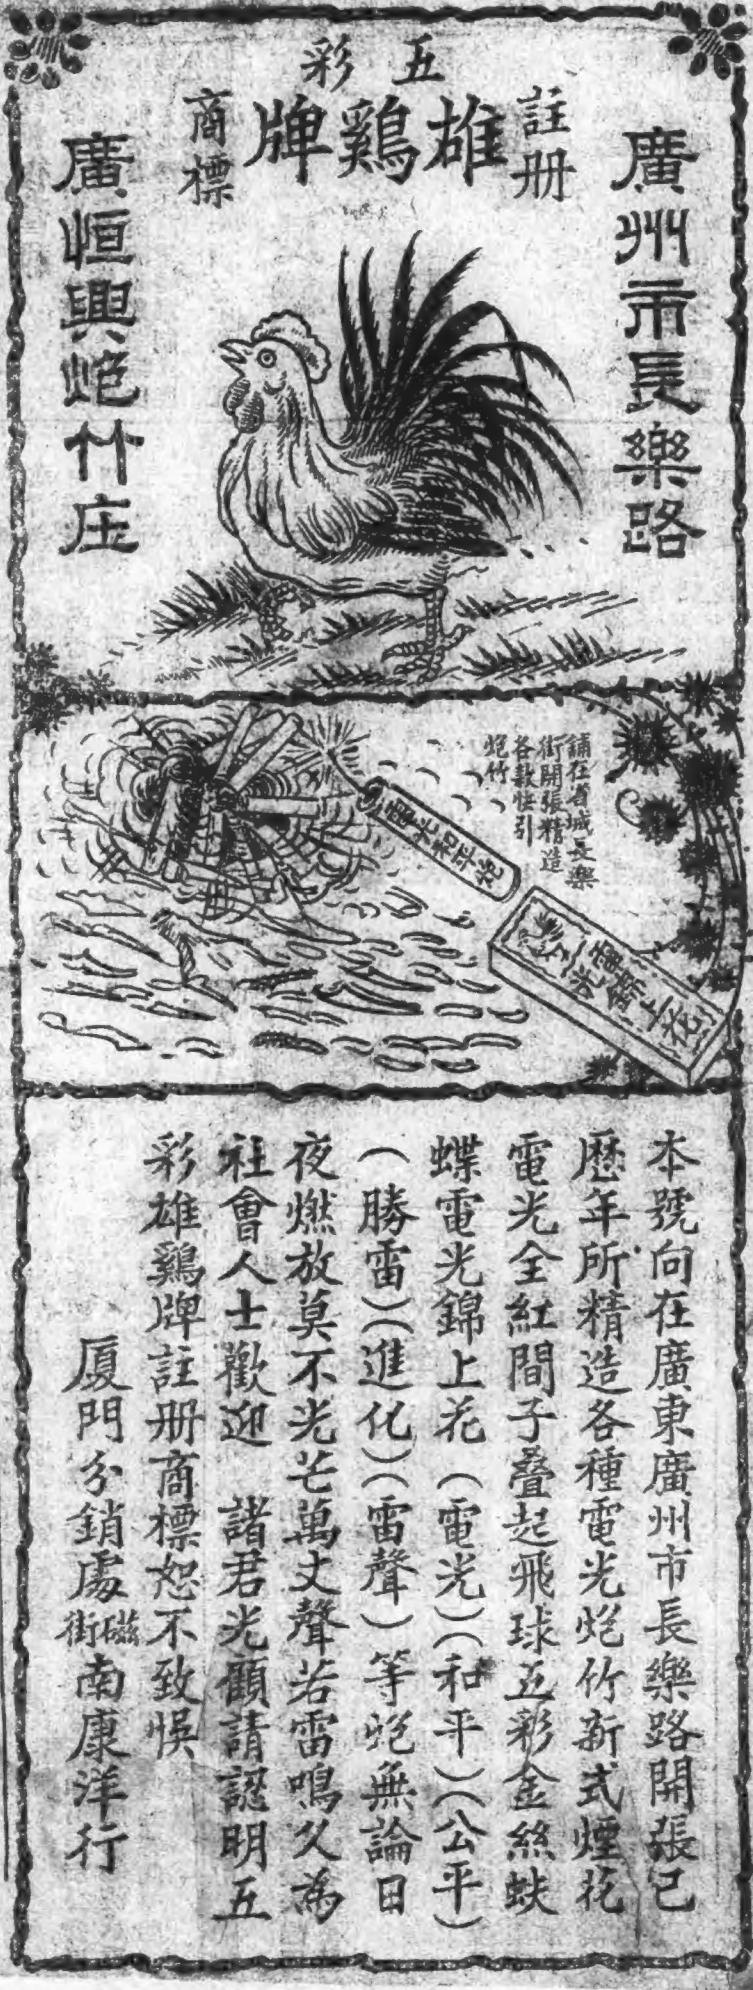 五彩
雄鷄牌
註册
商標
廣州市長樂路
廣恒興炮竹庄
鋪在省城長樂
街開張精造
各款快引
炮竹
電光和平炮
電光
錦上花
本號向在廣東廣州市長樂路開張已
歷年所精造各種電光炮竹新式煙花
電光全紅間子叠起飛球五彩金絲蚨
蝶電光錦上花（電光）（和平）（公平）
（勝雷）（進化）（雷聲）等炮無論日
夜燃放莫不光芒萬丈聲若雷鳴久為
社會人士歡迎 諸君光顧請認明五
彩雄鷄牌註册商標恕不致悞
厦門分銷處磁街南康洋行